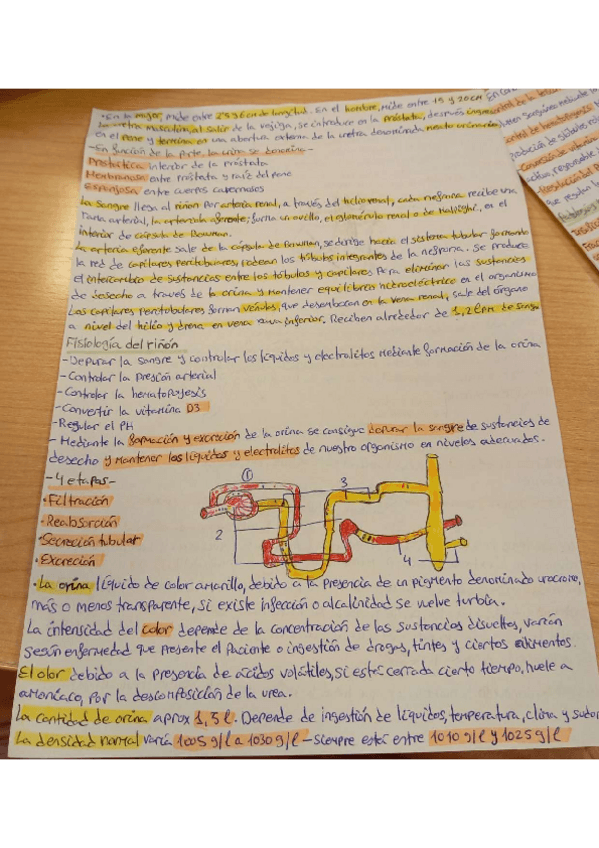 -En la mujer, mide entre 2,5 y 3,6 cm de longitud. En el hombre, mide entre 15 y 20 cm
La uretra masculina, al salir de la vejiga, se introduce en la próstata, después
en el pene y termina en una abertura externa de la uretra denominada meato urinario
-En función de la parte, la orina se denomina-
Prostática interior de la próstata
Membranosa entre próstata y raíz del pene
Esponjosa entre cuerpos cavernosos
La sangre llega al riñón por arteria renal, a través del hilio renal, cada nefrona recibe una
rama arterial, la arteriola aferente; forma un ovillo, el glomérulo renal o de Malpighi, en el
interior de cápsula de Bowman.
La arteria eferente sale de la cápsula de Bowman, se dirige hacia el sistema tubular formando
la red de capilares peritubulares, rodean los túbulos integrantes de la nefrona. Se produce
el intercambio de sustancias entre los túbulos y capilares para eliminar las sustancias
de desecho a través de la orina y mantener equilibrio hidroeléctrico en el organismo
Los capilares peritubulares forman vénulas, que desembocan en la vena renal, sale del órgano
a nivel del hilio y drena en vena cava inferior. Reciben alrededor de 1,2 lpm de sangre
Fisiología del riñón
-Depurar la sangre y controlar los líquidos y electrolitos mediante formación de la orina
-Controlar la presión arterial
-Controlar la hematopoyesis
-Convertir la vitamina D3
-Regular el PH
-Mediante la formación y excreción de la orina se consigue depurar la sangre de sustancias de
desecho y mantener los líquidos y electrolitos de nuestro organismo en niveles adecuados.
-4 etapas-
•Filtración
•Reabsorción
•Secreción tubular
•Excreción
1
2
3
4
•La orina líquido de color amarillo, debido a la presencia de un pigmento denominado urocromo,
más o menos transparente, si existe infección o alcalinidad se vuelve turbia.
La intensidad del color depende de la concentración de las sustancias disueltas, varían
según enfermedad que presente el paciente o ingestión de drogas, tintes y ciertos alimentos.
El olor debido a la presencia de ácidos volátiles, si está cerrada cierto tiempo, huele a
amoníaco, por la descomposición de la urea.
La cantidad de orina aprox 1,5 l. Depende de ingestión de líquidos, temperatura, clima y sudor
La densidad normal varía 1005 g/l a 1030 g/l - siempre está entre 1010 g/l y 1025 g/l